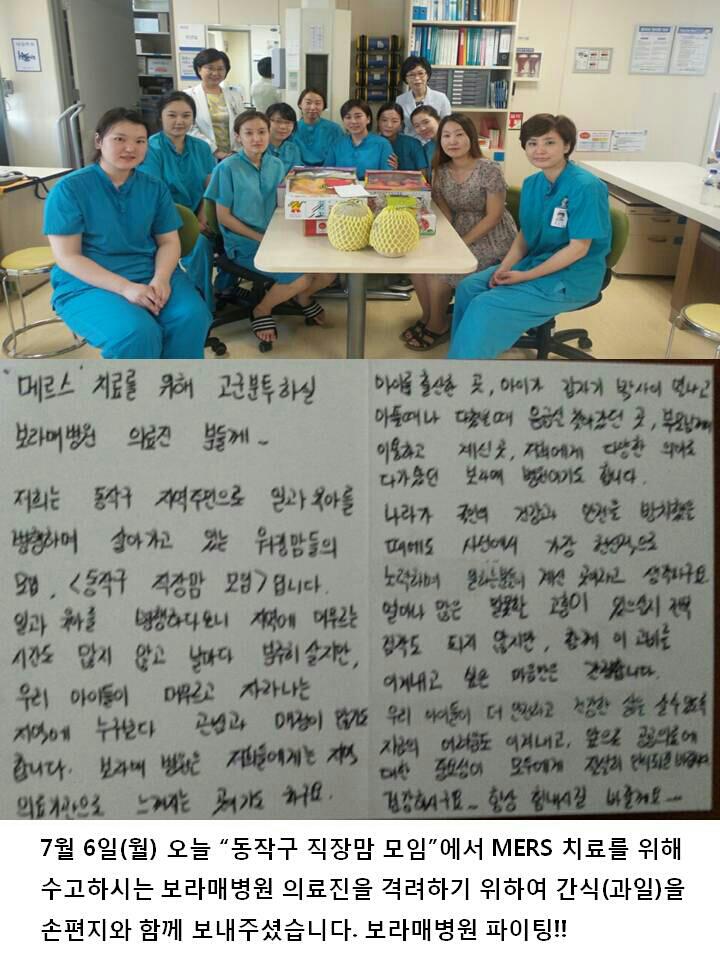 "메르스" 치료를 위해 고군분투하실
보라매병원 의료진 분들께~
저희는 동작구 지역주민으로 일과 육아를
병행하며 살아가고 있는 워킹맘들의
모임, <동작구 직장맘 모임>입니다.
일과 육아를 병행하다보니 지역에 머무르는
시간도 많지 않고 날마다 분주히 살지만,
우리 아이들이 머무르고 자라나는
지역에 누구보다 관심과 애정이 많기도
합니다. 보라매 병원은 저희들에게는 지역
의료기관으로 느껴지는 곳이기도 하구요.
아이를 출산한 곳, 아이가 갑자기 열나고
아플때나 다쳤을때 응급실 찾아갔던 곳,
이용하고 계신 곳, 저희에게 다양한 의미로
다가왔던 보라매 병원이기도 합니다.
나라가 국민의 건강과 안전을 방치했을
때에도 사선에서 가장 헌신적으로
노력하며 일하는분들이 계신 곳이라고 생각하구요.
얼마나 많은 말못할 고충이 있으실지 전혀
짐작도 되지 않지만, 함께 이 고비를
이겨내고 싶은 마음만은 간절합니다.
우리 아이들이 더 안전하고 건강한 삶을 살 수 있도록
지금의 어려움도 이겨내고, 앞으로 공공의료에
대한 중요성이 모두에게 절실히
건강하시구요~ 항상 힘내시길 바랄게요~
7월 6일(월) 오늘 “동작구 직장맘 모임”에서 MERS 치료를 위해
수고하시는 보라매병원 의료진을 격려하기 위하여 간식(과일)을
손편지와 함께 보내주셨습니다. 보라매병원 파이팅!!